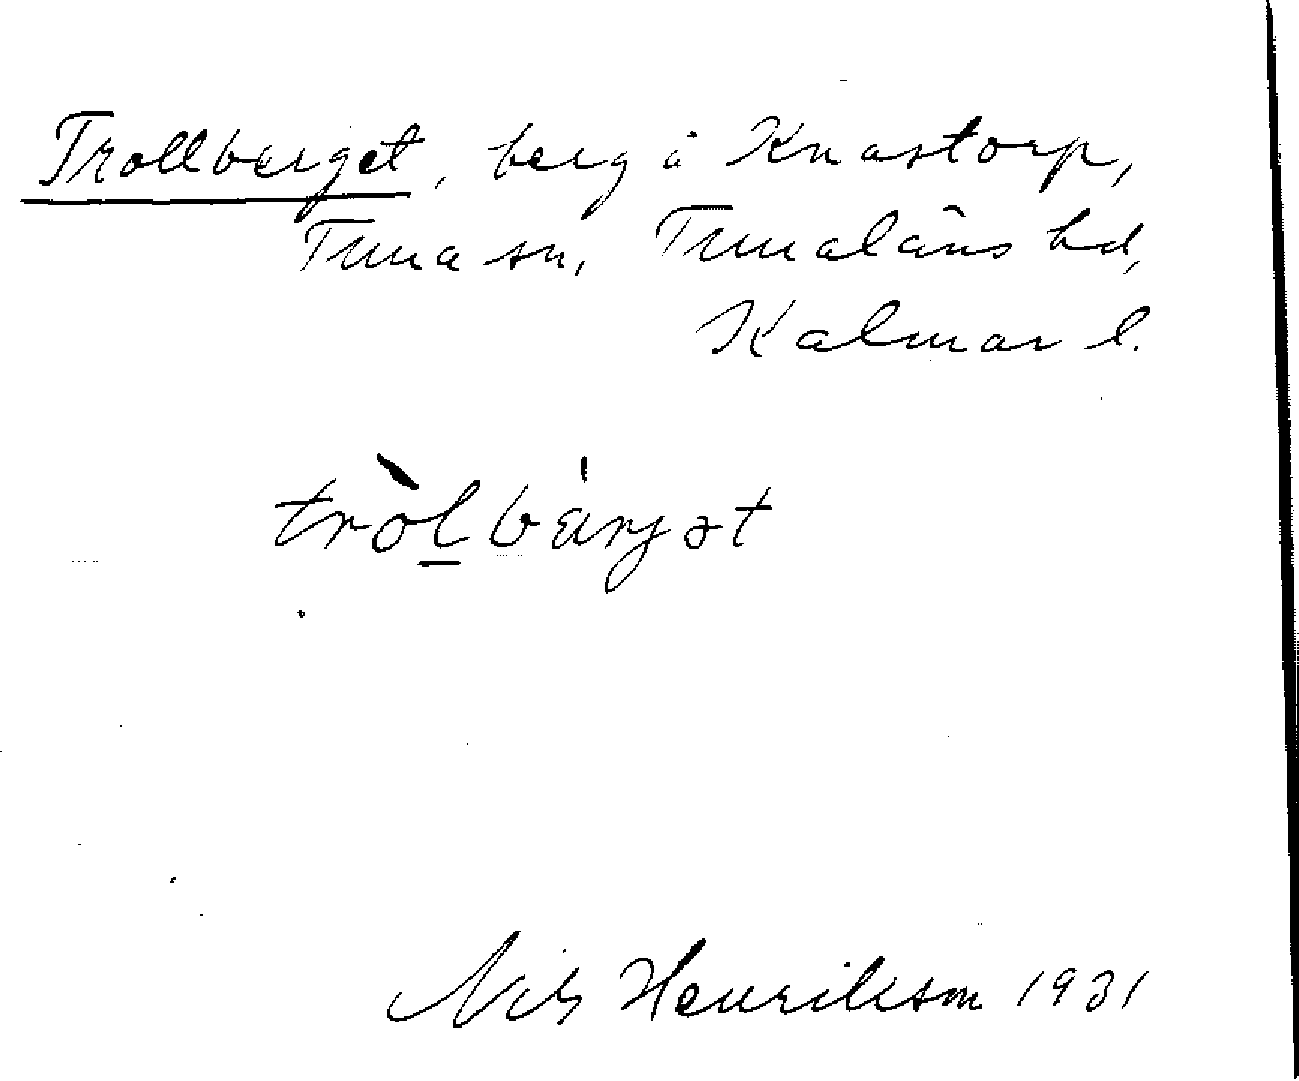 Trollberget, berg å Knastorp,
Tuna sn, Tunaläns hd,
Kalmar l.
tròlbärjət
Nils Henrikson 1931